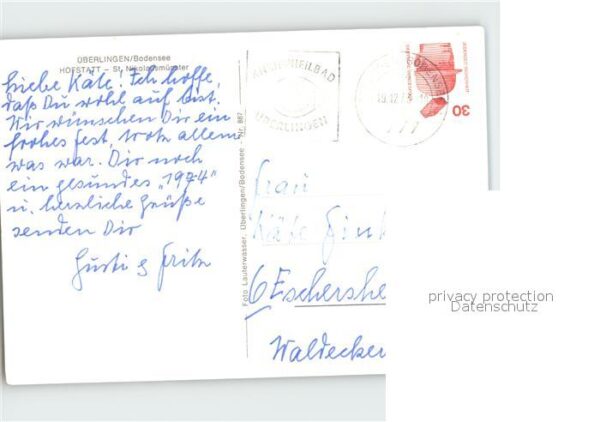 ÜBERLINGEN/Bodensee
HOFSTATT - St. Nikolausmünster
Liebe Käte! Ich hoffe,
daß Du wohl auf bist.
Wir wünschen Dir ein
frohes Fest, trotz allem
was war. Dir noch
ein gesundes "1974"
u. herzliche Grüße
senden Dir
Gusti & Fritz
Foto Lauterwasser, Überlingen/Bodensee - Nr. 867
KNEIPPHEILBAD
ÜBERLINGEN
19.12.7
777
30
Frau
Käte Fink
6 Eschershe
Waldecker
privacy protection
Datenschutz